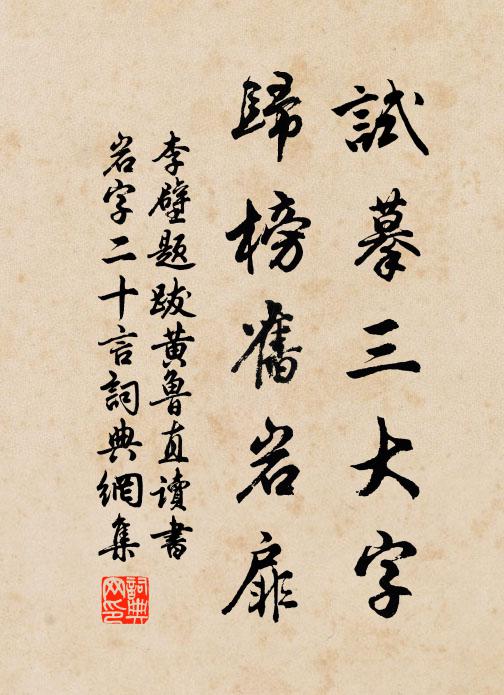 試摹三大字
歸榜舊岩扉
李壁題跋黃魯直讀書
岩字二十言詞典網集
詞典网印